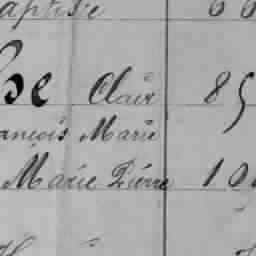 aptiste 60
se Clair 85
ançois Marie
Marie Pierre 10